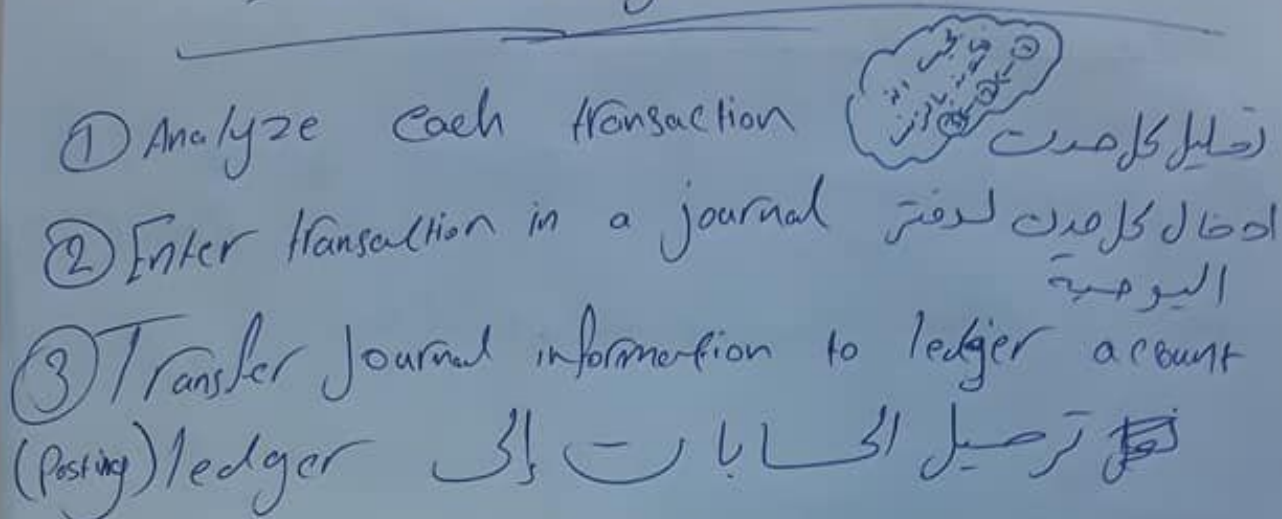 ① Analyze each transaction تحليل كل حدث
② Enter transaction in a journal ادخال كل حدث لدفتر
اليومية
③ Transfer Journal information to ledger account
(Posting) ledger ترحيل الحسابات إلى